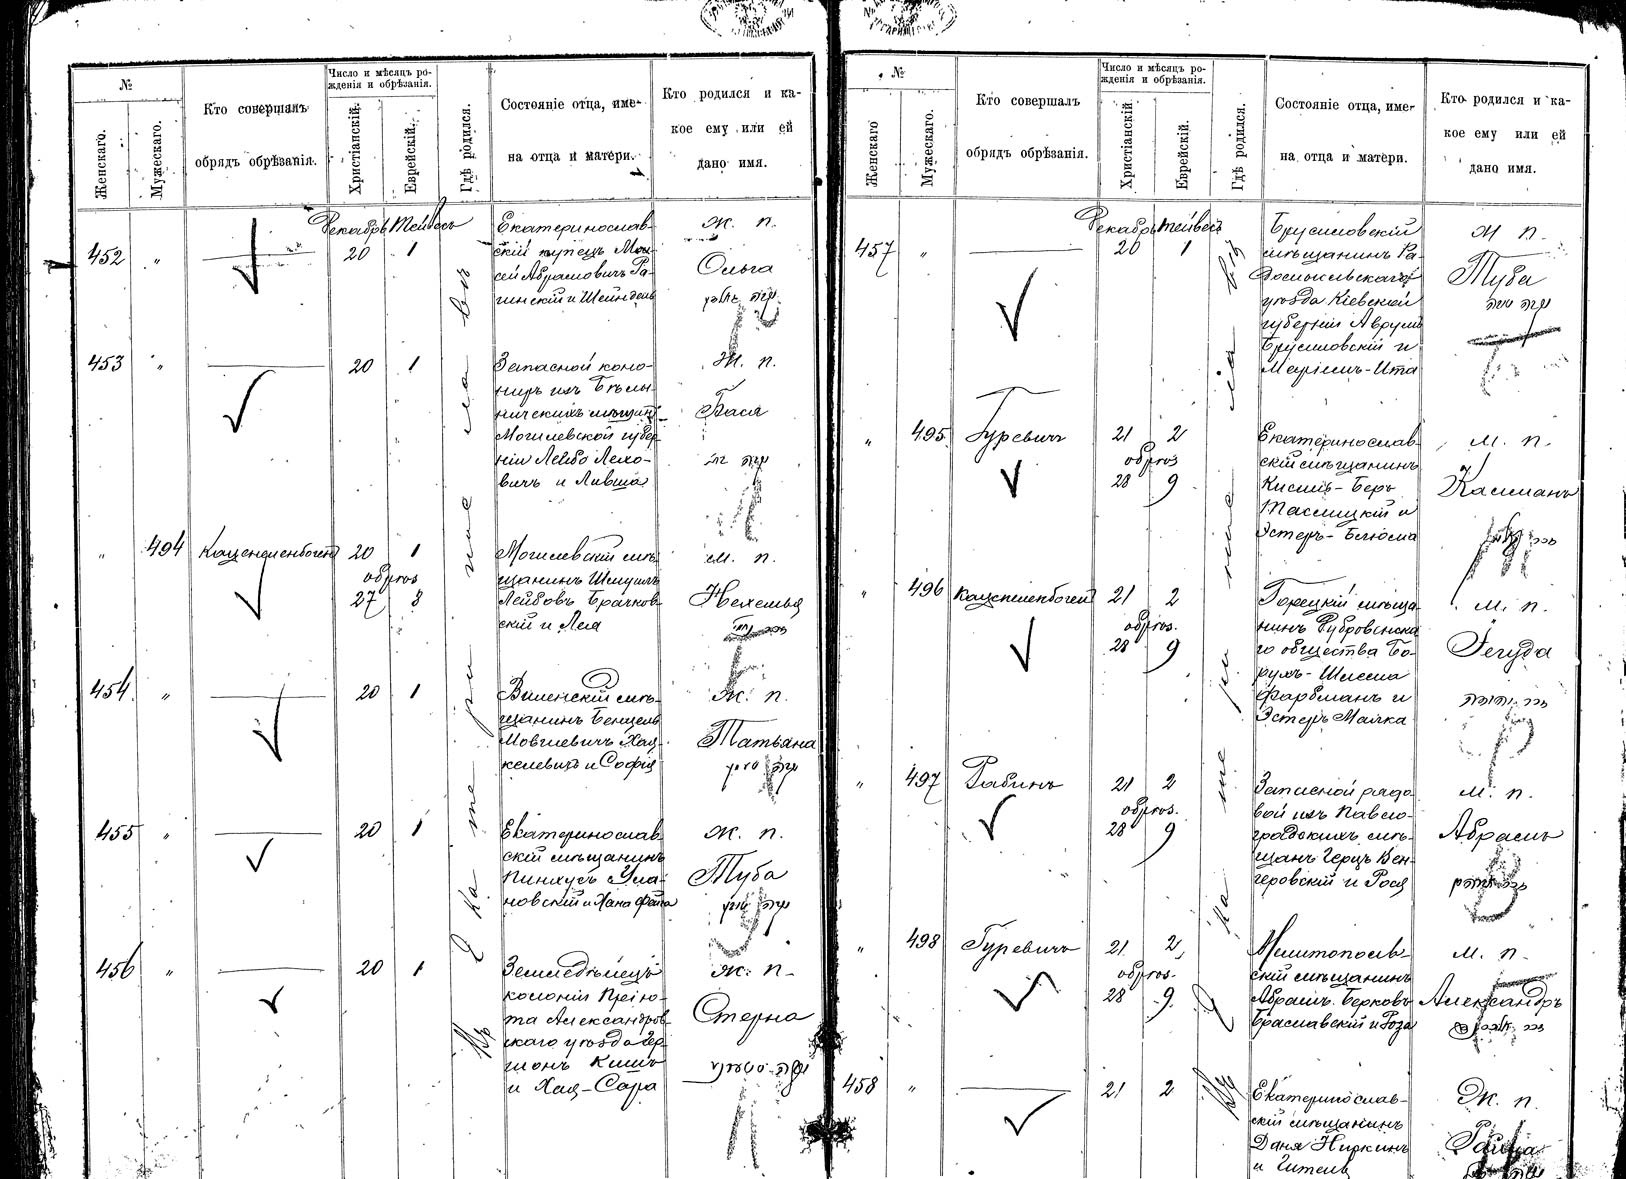 №
Женскаго.
Мужескаго.
Кто совершалъ
обрядъ обрѣзанія.
Число и мѣсяцъ ро-
жденія и обрѣзанія.
Христіанскій.
Еврейскій.
Гдѣ родился.
Состояніе отца, име-
на отца и матери.
Кто родился и ка-
кое ему или ей
дано имя.
Декабрь Тейвесъ
452 " 20 1
Екатеринослав-
скій купецъ Мои-
сей Абрамовичъ Ра-
гинскій и Шейндель
Ж. п.
Ольга
453 " 20 1
Запасной кано-
ниръ изъ Бѣлы-
ничскихъ мѣщанъ
Могилевской губер-
ніи Лейбо
вичъ и Ливша
Ж. п.
Бася
" 494 Каценеленбогенъ 20 1
обрѣз
27 8
Могилевскій мѣ-
щанинъ Шмуилъ
Лейбовъ Брачков-
скій и Лея
м. п.
Нехемья
454 " 20 1
Виленскій мѣ-
щанинъ Бенцель
Мовшевичъ Хац-
келевичъ и Софія
Ж. п.
Татьяна
455 " 20 1
Екатеринослав-
скій мѣщанинъ
Пинхусъ Ула-
новскій и Хана Фейга
Ж. п.
Туба
456 " 20 1
Земледѣлецъ
колоніи Пріют-
та Александров-
скаго уѣзда Гер-
шонъ Кишъ
и Хая-Сара
Ж. п.
Стерна
Въ Екатеринославѣ
№
Женскаго
Мужескаго.
Кто совершалъ
обрядъ обрѣзанія.
Число и мѣсяцъ ро-
жденія и обрѣзанія.
Христіанскій
Еврейскій.
Гдѣ родился.
Состояніе отца, име-
на отца и матери.
Кто родился и ка-
кое ему или ей
дано имя.
Декабрь Тейвесъ
457 " 20 1
Брусиловскій
мѣщанинъ Ра-
домысльскаго
уѣзда Кіевской
губерніи Аврумъ
Брусиловскій и
Маріямъ-Ита
Ж п.
Туба
" 495 Гуревичъ 21 2
обрѣз
28 9
Екатеринослав-
скій мѣщанинъ
Кисиль-Беръ
Таслицкій и
Эстеръ-Блюма
м. п.
Калманъ
" 496 Каценеленбогенъ 21 2
обрѣз.
28 9
Горецкій мѣща-
нинъ Дубровенска-
го общества Бо-
рухъ-Шлема
Фарбманъ и
Эстеръ Малка
м. п.
Іегуда
" 497 Рабинъ 21 2
обрѣз.
28 9
Запасной рядо-
вой изъ Павло-
градскихъ мѣ-
щанъ Герцъ Вен-
геровскій и Рося
м. п.
Абрамъ
" 498 Гуревичъ 21 2
обрѣз.
28 9
Мелитополь-
скій мѣщанинъ
Абрамъ Берковъ
Браславскій и Роза
м. п.
Александръ
458 " 21 2
Екатеринослав-
скій мѣщанинъ
Даня Ниркинъ
и Гитель
Ж. п.
Въ Екатеринославѣ